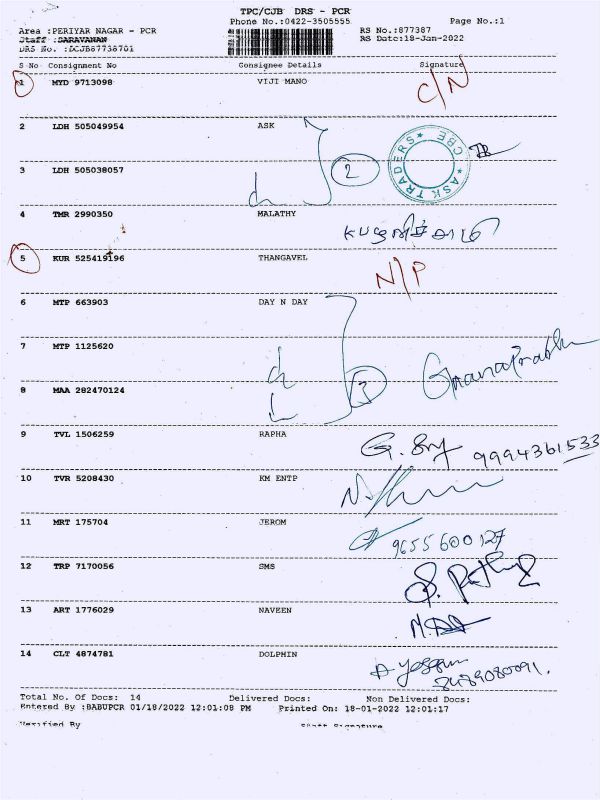 TPC/CJB DRS - PCR
Phone No.:0422-3505555 Page No.:1
Area :PERIYAR NAGAR - PCR RS No.:877387
Staff :SARAVANAN RS Date:18-Jan-2022
DRS No. :DCJB87738701
S No Consignment No Consignee Details Signature
1 MYD 9713098 VIJI MANO C/N
2 LDH 505049954 ASK
3 LDH 505038057 2 ASK TRADERS CBE
4 TMR 2990350 MALATHY
5 KUR 525419196 THANGAVEL N/P
6 MTP 663903 DAY N DAY
7 MTP 1125620
8 MAA 282470124 3
9 TVL 1506259 RAPHA 9994361533
10 TVR 5208430 KM ENTP
11 MRT 175704 JEROM 9655600127
12 TRP 7170056 SMS
13 ART 1776029 NAVEEN
14 CLT 4874781 DOLPHIN
Total No. Of Docs: 14 Delivered Docs: Non Delivered Docs:
Entered By :BABUPCR 01/18/2022 12:01:08 PM Printed On: 18-01-2022 12:01:17
Verified By Staff Signature